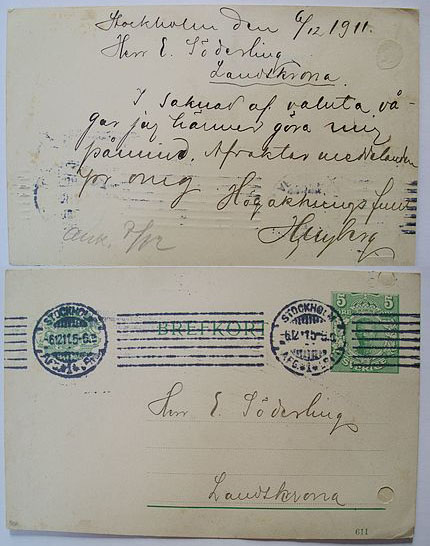 Stockholm den 6/12 1911.
Herr E. Söderling
Landskrona.
I saknad af valuta vå-
gar jag härmed göra mig
påmind. Afvaktar meddelanden
pr omg
Högaktningsfullt
ank. 7/12
5 5
STOCKHOLM
BREFKORT
STOCKHOLM
6.12.11.5-6.E
6.12.11.5-6.E
SVERIGE
Herr E. Söderling
Landskrona
611